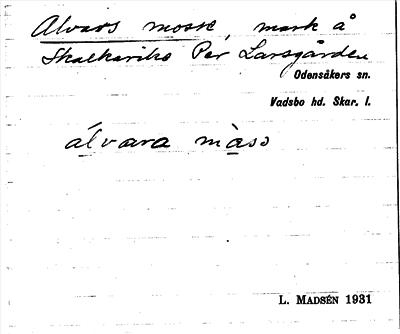 Alvars mosse, mark å
Skalkariks Per Larsgården
Odensåkers sn.
Vadsbo hd. Skar. l.
álvara màso
L. MADSÉN 1931